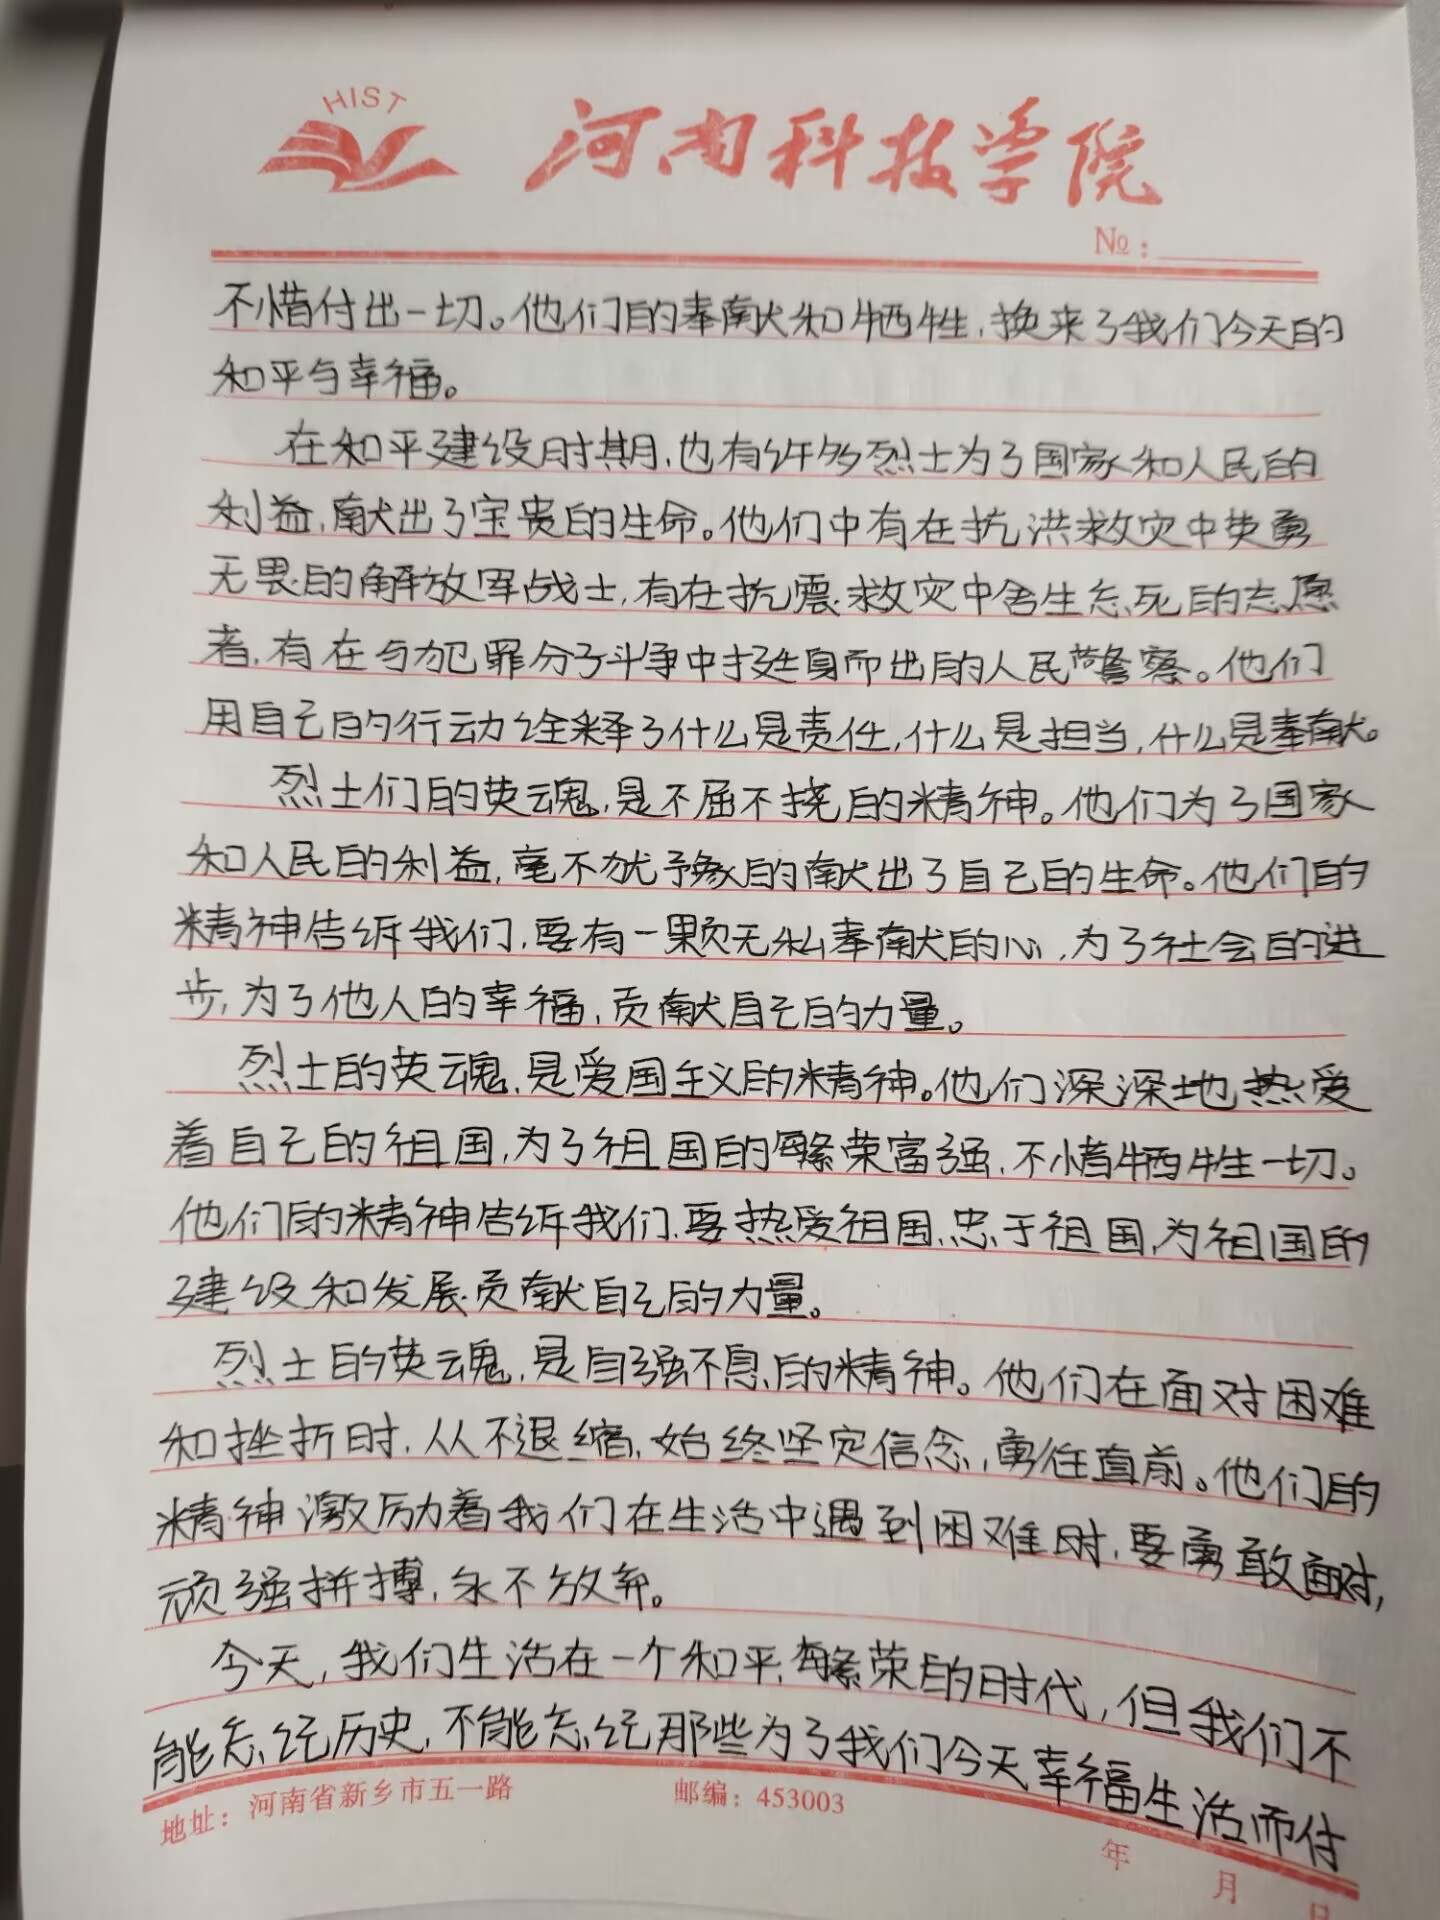 HIST
河南科技学院
№：
不惜付出一切。他们的奉献和牺牲，换来了我们今天的
和平与幸福。
在和平建设时期，也有许多烈士为了国家和人民的
利益，献出了宝贵的生命。他们中有在抗洪救灾中英勇
无畏的解放军战士，有在抗震救灾中舍生忘死的志愿
者，有在与犯罪分子斗争中挺身而出的人民警察。他们
用自己的行动诠释了什么是责任，什么是担当，什么是奉献。
烈士们的英魂，是不屈不挠的精神。他们为了国家
和人民的利益，毫不犹予豫的献出了自己的生命。他们的
精神告诉我们，要有一颗无私奉献的心，为了社会的进
步，为了他人的幸福，贡献自己的力量。
烈士的英魂，是爱国主义的精神。他们深深地热爱
着自己的祖国，为了祖国的繁荣富强，不惜牺牲一切。
他们的精神告诉我们，要热爱祖国，忠于祖国，为祖国的
建设和发展贡献自己的力量。
烈士的英魂，是自强不息的精神。他们在面对困难
和挫折时，从不退缩，始终坚定信念，勇往直前。他们的
精神激励着我们在生活中遇到困难时，要勇敢面对，
顽强拼搏，永不放弃。
今天，我们生活在一个和平，繁荣的时代，但我们不
能忘纪历史，不能忘纪那些为了我们今天幸福生活而付
地址：河南省新乡市五一路 邮编：453003
年 月 日